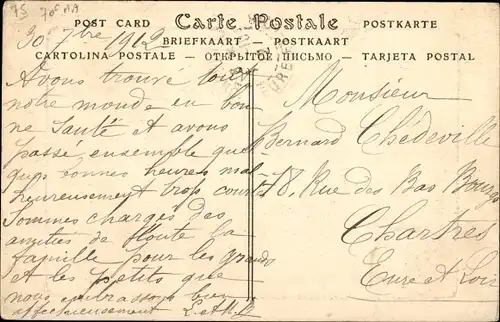 75 70 c
POST CARD Carte Postale POSTKARTE
BRIEFKAART — POSTKAART
CARTOLINA POSTALE — ОТКРЫТОЕ ПИСЬМО — TARJETA POSTAL
30 7bre 1912
Avons trouvé tout
notre monde en bon
ne santé et avons
passé ensemble quel
ques bonnes heures mal
heureusement trop courtes
Sommes chargés des
amitiés de toute la
famille pour les grands
et les petits que
nous embrassons bien
affectueusement
Monsieur
Bernard Chedeville
18, Rue des Bas Bourgs
Chartres
Eure et Loir